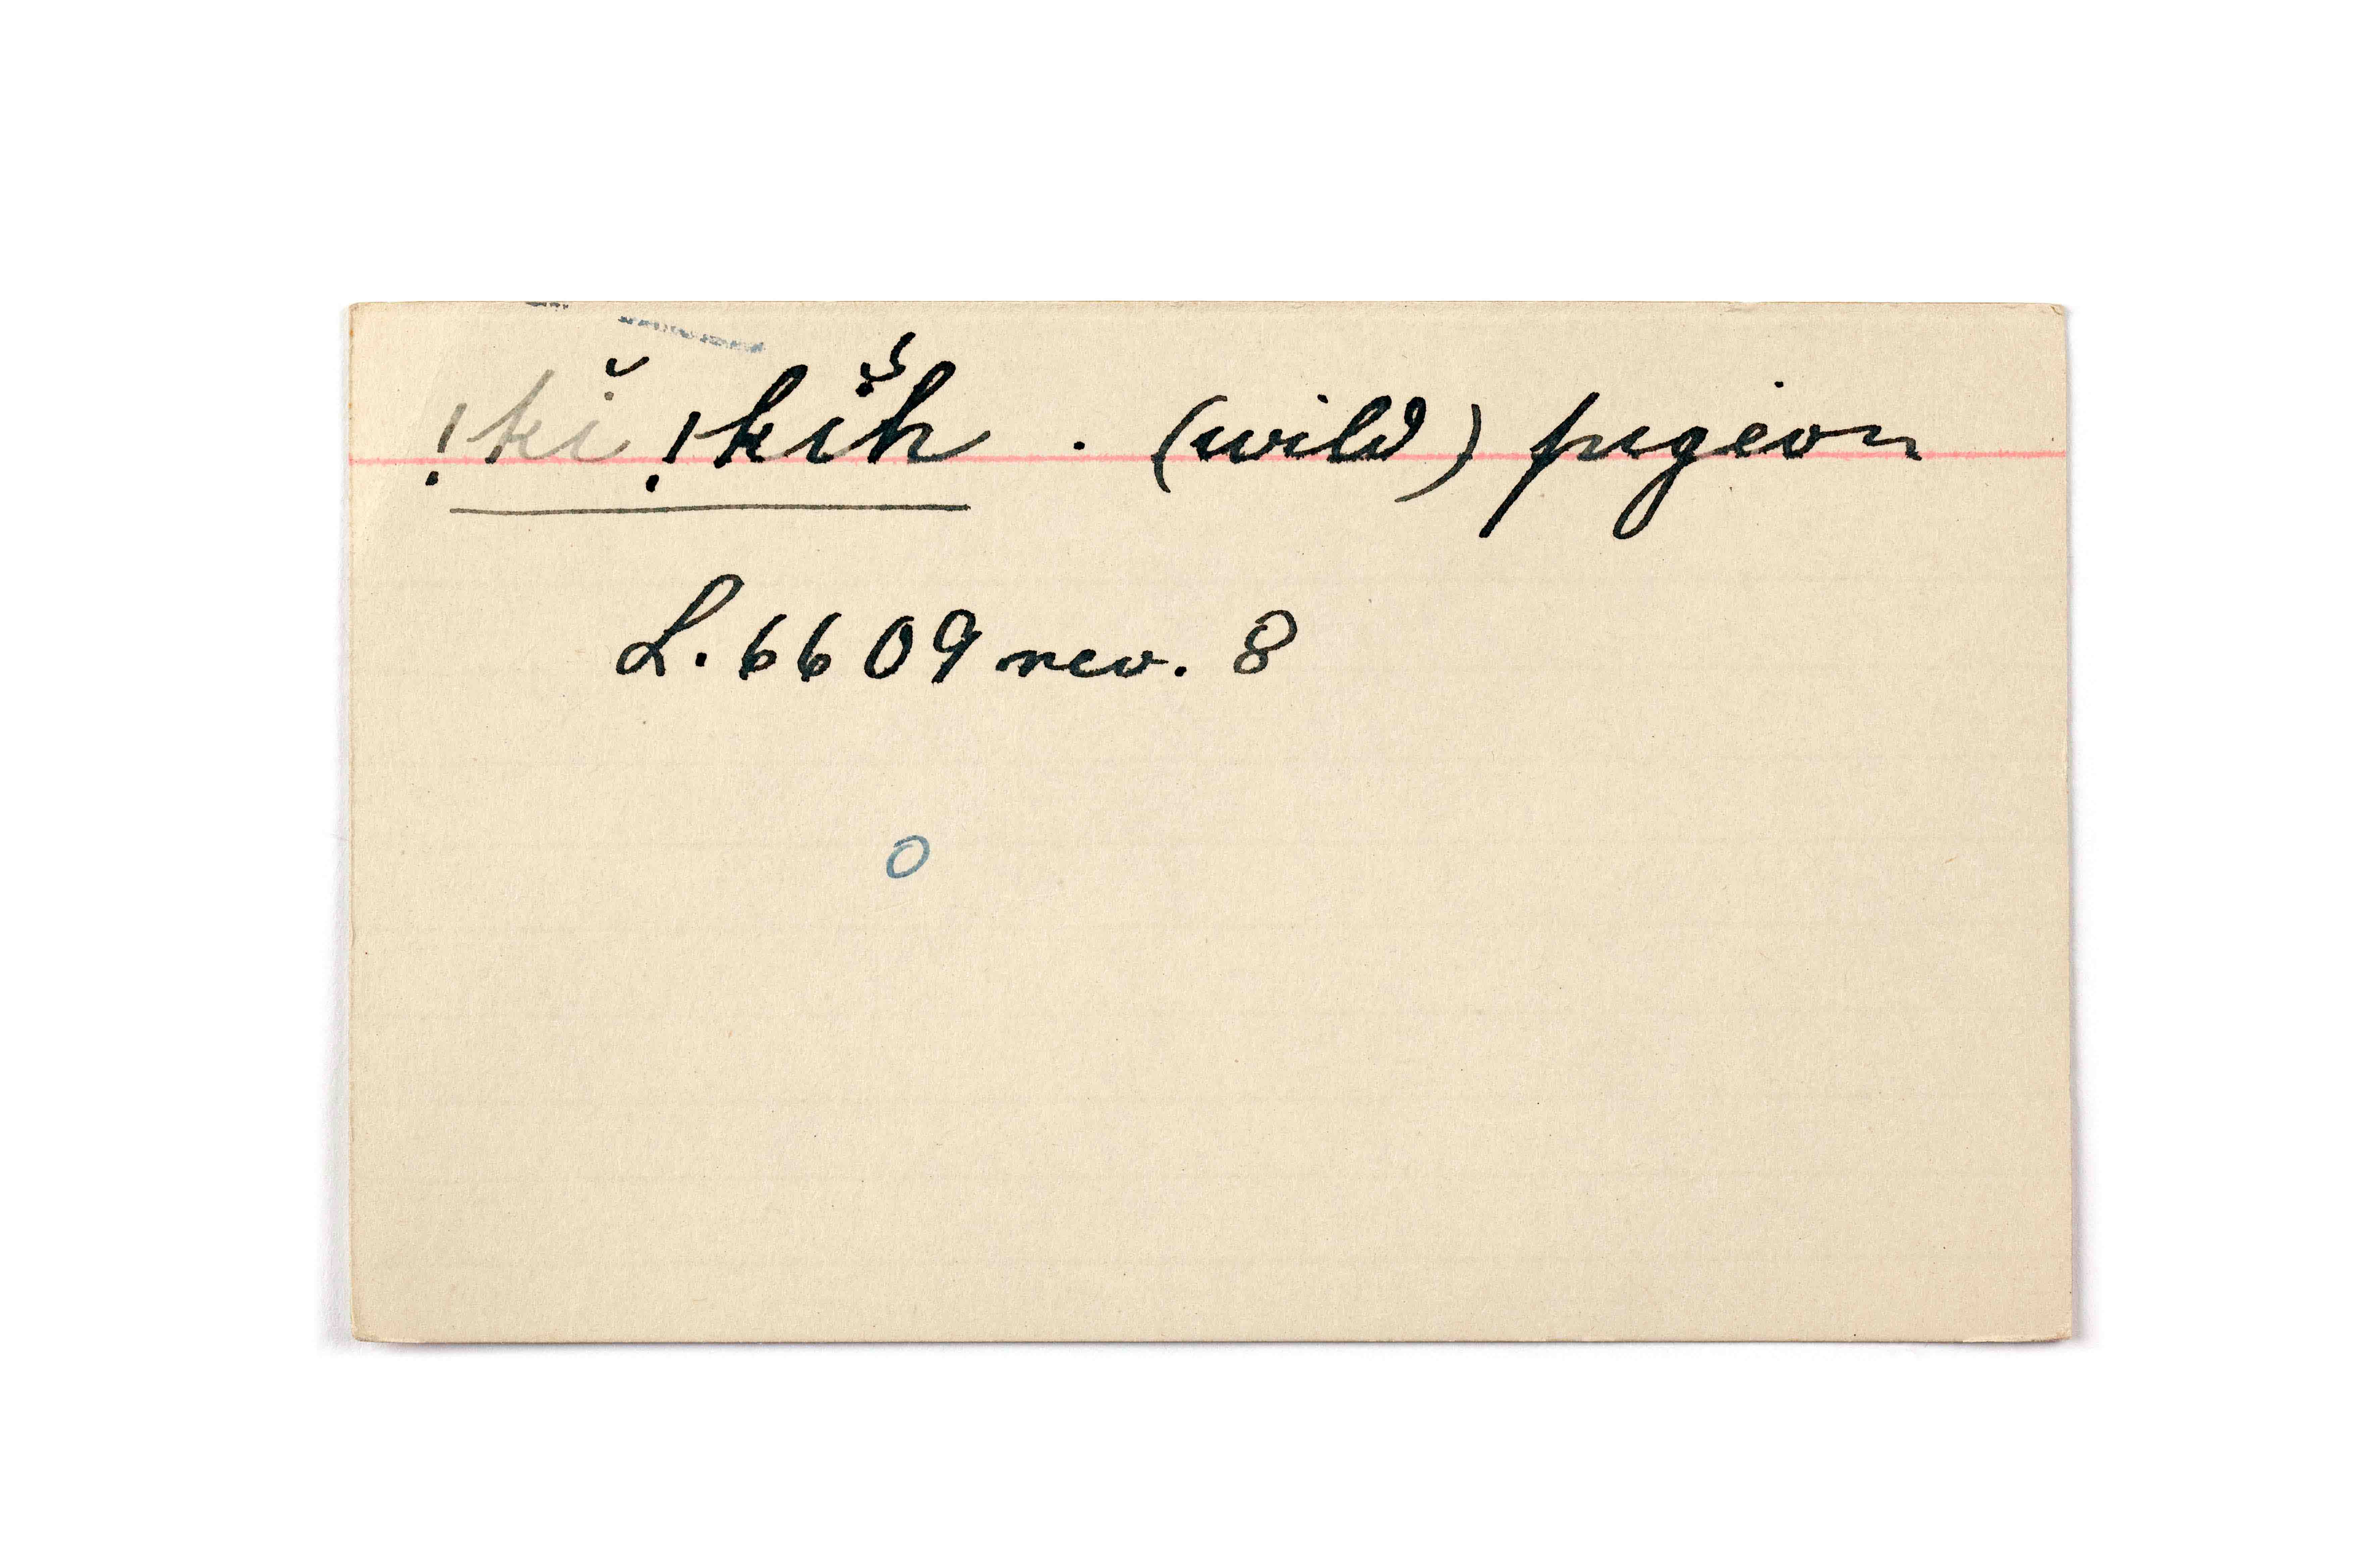 !kĭ !kĭh . (wild) pigeon
L. 6609 rev. 8